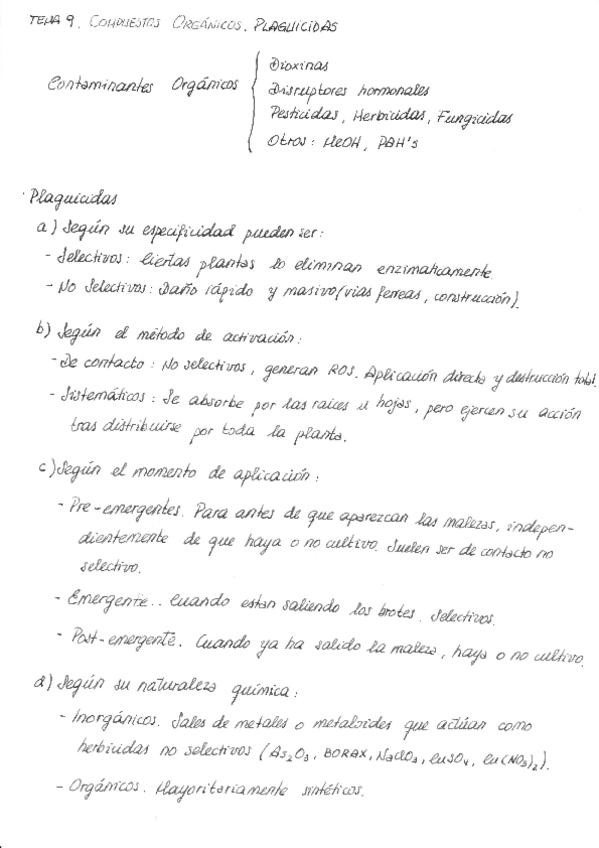 TEMA 9. COMPUESTOS ORGÁNICOS. PLAGUICIDAS
Contaminantes Orgánicos
Dioxinas
Disruptores hormonales
Pesticidas, Herbicidas, Fungicidas
Otros: MeOH, PAH's
· Plaguicidas
a) Según su especificidad pueden ser:
- Selectivos: Ciertas plantas lo eliminan enzimaticamente
- No Selectivos: Daño rápido y masivo (vías ferreas, construcción).
b) Según el método de activación:
- De contacto: No selectivos, generan ROS. Aplicación directa y destrucción total.
- Sistemáticos: Se absorbe por las raices u hojas, pero ejercen su acción
tras distribuirse por toda la planta.
c) Según el momento de aplicación:
- Pre-emergentes. Para antes de que aparezcan las malezas, indepen-
dientemente de que haya o no cultivo. Suelen ser de contacto no
selectivo.
- Emergente.. Cuando estan saliendo los brotes. Selectivos.
- Post-emergente. Cuando ya ha salido la maleza, haya o no cultivo.
d) Según su naturaleza química:
- Inorgánicos. Sales de metales o metaloides que actúan como
herbicidas no selectivos (As₂O₃, BORAX, NaClO₃, CuSO₄, Cu(NO₃)₂).
- Orgánicos. Mayoritariamente sintéticos.